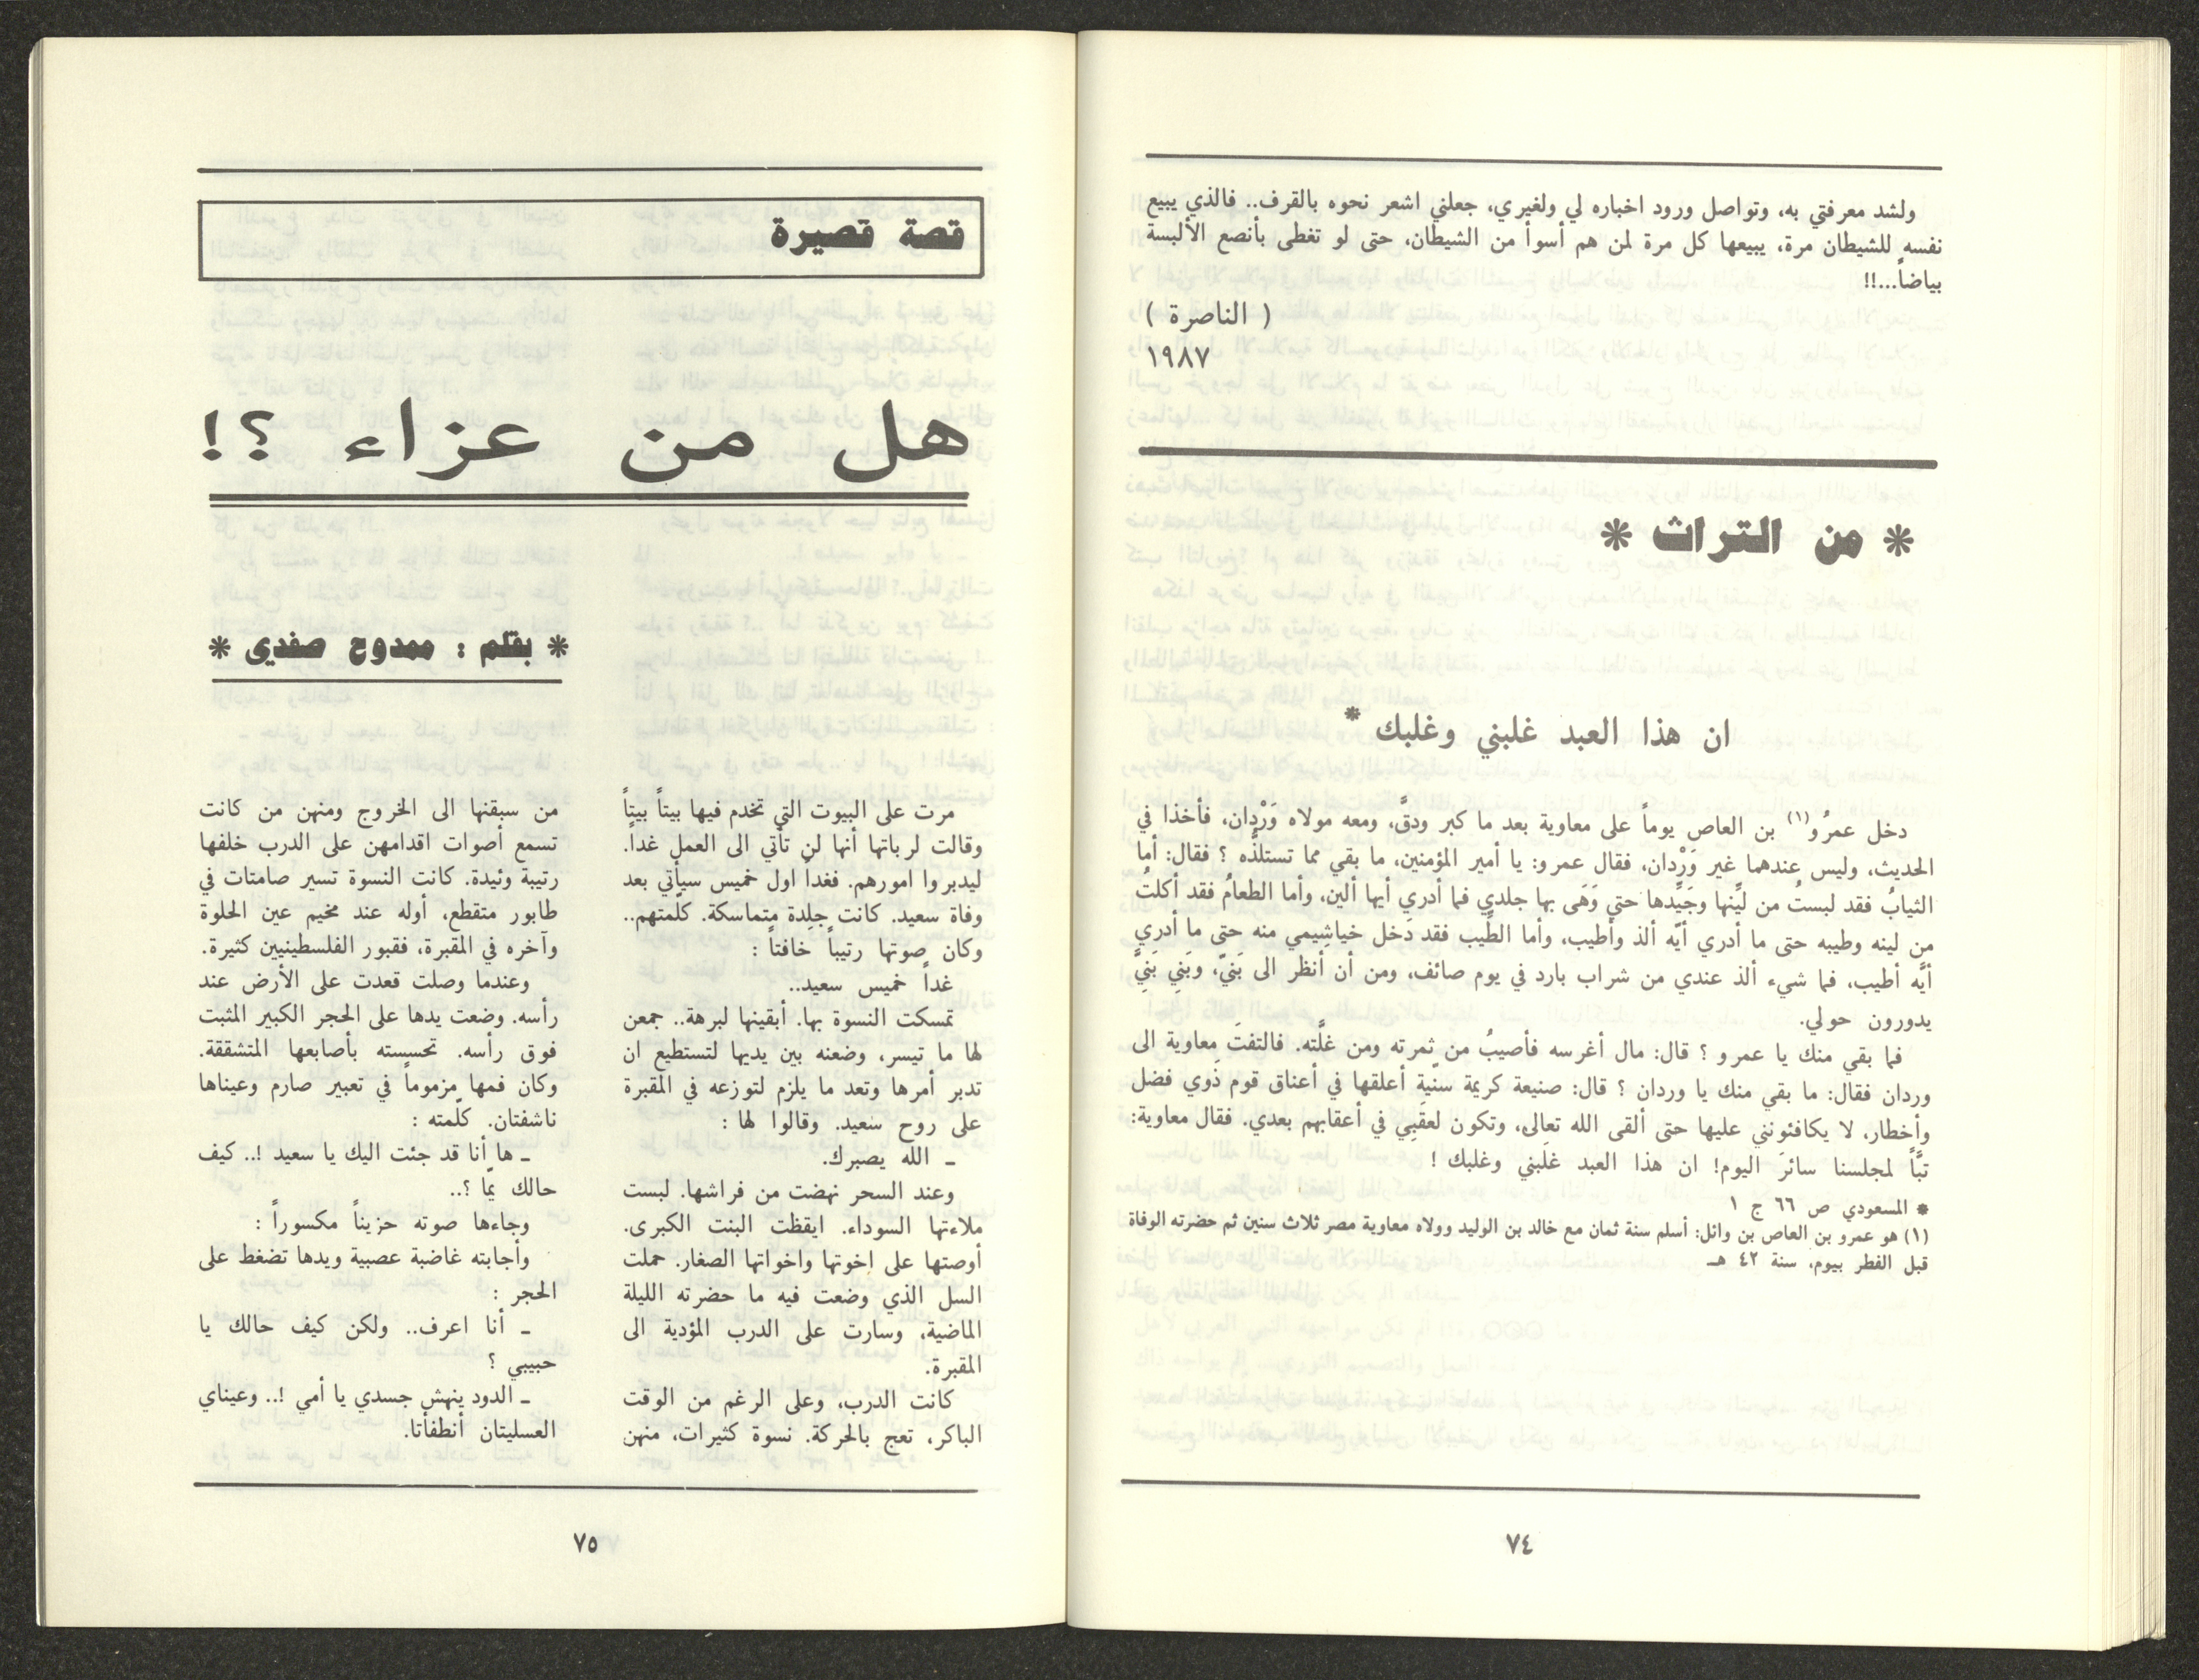 ولشد معرفتي به، وتواصل ورود اخباره لي ولغيري، جعلني اشعر نحوه بالقرف.. فالذي يبيع
نفسه للشيطان مرة، يبيعها كل مرة لمن هم أسوأ من الشيطان، حتى لو تغطى بأنصع الألبسة
بياضاً...!!
( الناصرة )
١٩٨٧
* من التراث *
ان هذا العبد غلبني وغلبك *
دخل عمرُو(١) بن العاص يوماً على معاوية بعد ما كبر ودقَّ، ومعه مولاه وَرْدان، فأخذا في
الحديث، وليس عندهما غير وَرْدان، فقال عمرو: يا أمير المؤمنين، ما بقي مما تستلذُّه ؟ فقال: أما
الثيابُ فقد لبستُ من لَيِّنها وجَيِّدها حتى وَهَى بها جلدي فما أدري أيها ألين، وأما الطعامُ فقد أكلتُ
من لينه وطيبه حتى ما أدري أيّه ألذ وأطيب، وأما الطِّيب فقد دَخل خياشِيمي منه حتى ما أدري
أيَّه أطيب، فما شيء ألذ عندي من شراب بارد في يوم صائف، ومن أن أنظر الى بَنيّ، وبَنِي بَنِيَّ
يدورون حولي.
فما بقي منك يا عمرو ؟ قال: مال أغرسه فأصيبُ من ثمرته ومن غلَّته. فالتفتَ معاوية الى
وردان فقال: ما بقي منك يا وردان ؟ قال: صنيعة كريمة سنّية أعلقها في أعناق قوم ذَوي فضل
وأخطار، لا يكافئونني عليها حتى ألقى الله تعالى، وتكون لعقَبِي في أعقابهم بعدي. فقال معاوية:
تبَّاً لمجلسنا سائرَ اليوم! ان هذا العبد غلبني وغلبك !
* المسعودي ص ٦٦ ج ١
(١) هو عمرو بن العاص بن وائل: أسلم سنة ثمان مع خالد بن الوليد وولاه معاوية مصر ثلاث سنين ثم حضرته الوفاة
قبل الفطر بيوم، سنة ٤٢ هـ
٧٤
قصة قصيرة
هل من عزاء ؟!
* بقلم : ممدوح صفدي *
مرت على البيوت التي تخدم فيها بيتاً بيتاً
وقالت لرباتها أنها لن تأتي الى العمل غداً.
ليدبروا امورهم. فغداً اول خميس سيأتي بعد
وفاة سعيد. كانت جلِدة متماسكة. كلّمتهم..
وكان صوتها رتيباً خافتاً :
غداً خميس سعيد..
تمسكت النسوة بها. أبقينها لبرهة.. جمعن
لها ما تيسر، وضعنه بين يديها لتستطيع ان
تدبر أمرها وتعد ما يلزم لتوزعه في المقبرة
على روح سعيد. وقالوا لها :
ـ الله يصبرك.
وعند السحر نهضت من فراشها. لبست
ملاءتها السوداء. ايقظت البنت الكبرى.
أوصتها على اخوتها واخواتها الصغار. حملت
السل الذي وضعت فيه ما حضرته الليلة
الماضية، وسارت على الدرب المؤدية الى
المقبرة.
كانت الدرب، وعلى الرغم من الوقت
الباكر، تعج بالحركة. نسوة كثيرات، منهن
من سبقنها الى الخروج ومنهن من كانت
تسمع أصوات اقدامهن على الدرب خلفها
رتيبة وئيدة. كانت النسوة تسير صامتات في
طابور متقطع، أوله عند مخيم عين الحلوة
وآخره في المقبرة، فقبور الفلسطينيين كثيرة.
وعندما وصلت قعدت على الأرض عند
رأسه. وضعت يدها على الحجر الكبير المثبت
فوق رأسه. تحسسته بأصابعها المتشققة.
وكان فمها مزموماً في تعبير صارم وعيناها
ناشفتان. كلّمته :
ـ ها أنا قد جئت اليك يا سعيد !.. كيف
حالك يمّا ؟..
وجاءها صوته حزيناً مكسوراً :
وأجابته غاضبة عصبية ويدها تضغط على
الحجر :
ـ أنا اعرف.. ولكن كيف حالك يا
حبيبي ؟
ـ الدود ينهش جسدي يا أمي !.. وعيناي
العسليتان أنطفأتا.
٧٥